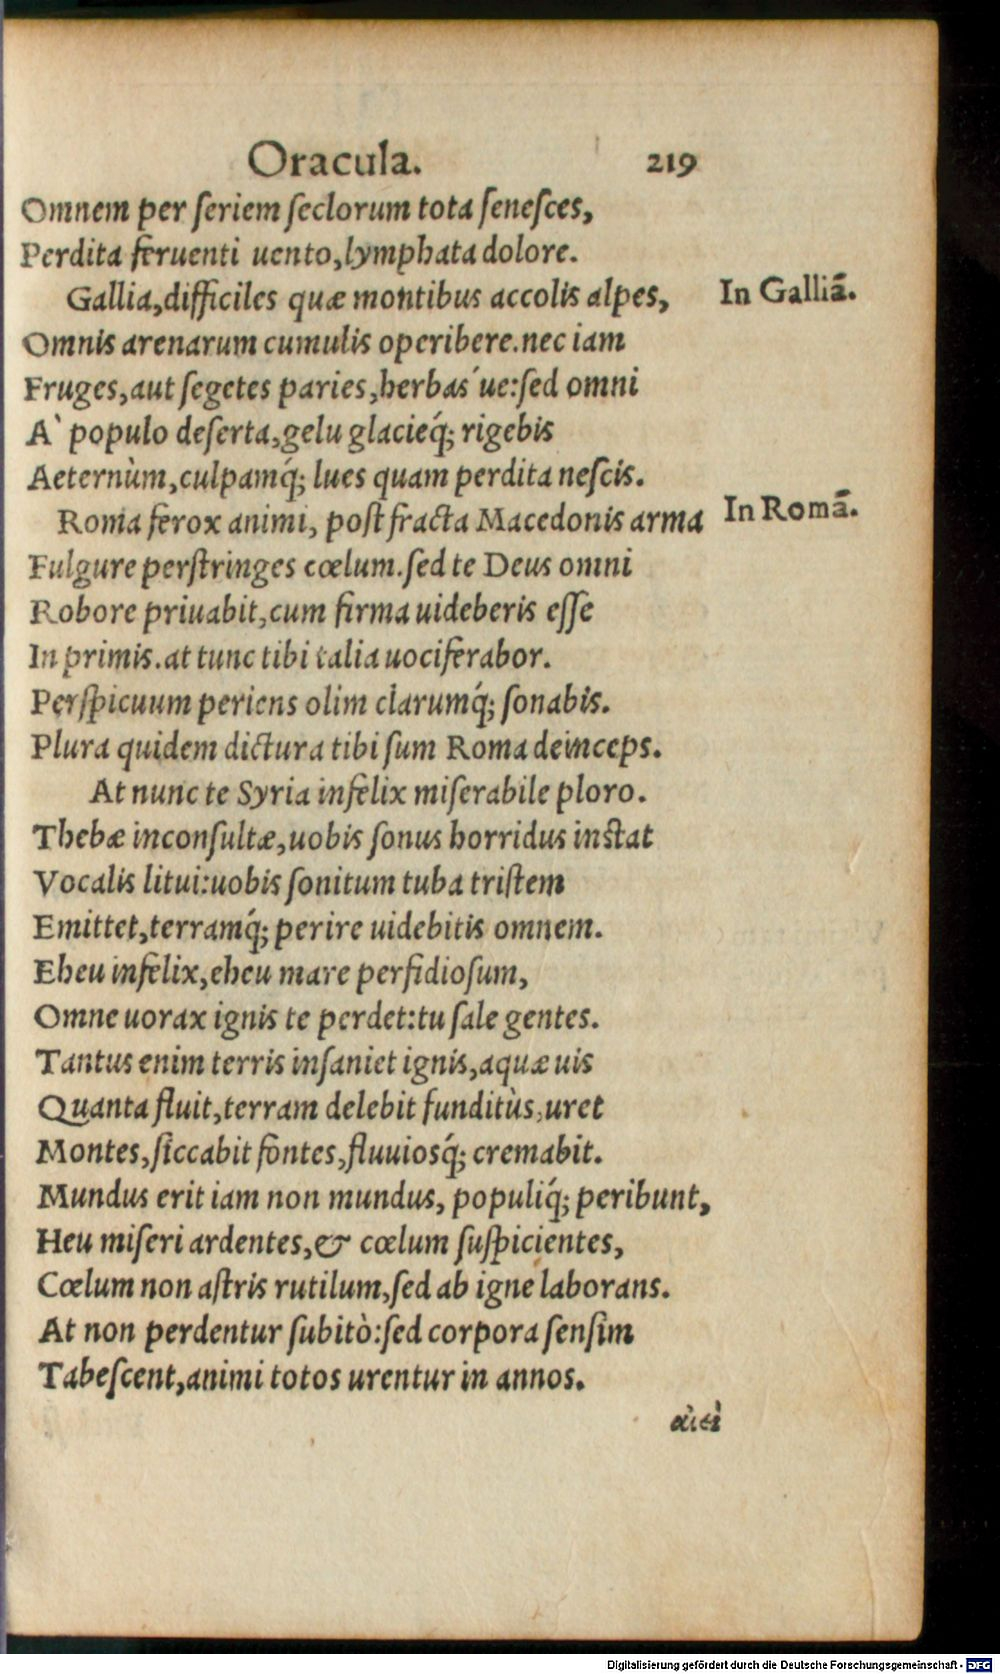 Oracula. 219
Omnem per ſeriem ſeclorum tota ſeneſces,
Perdita feruenti uento, lymphata dolore.
Gallia, difficiles quæ montibus accolis alpes, In Galliā.
Omnis arenarum cumulis operibere. nec iam
Fruges, aut ſegetes paries, herbas´ue: ſed omni
A` populo deſerta, gelu glacieq́; rigebis
Aeternùm, culpamq́; lues quam perdita neſcis.
Roma ferox animi, poſt fracta Macedonis arma In Romā.
Fulgure perſtringes cœlum. ſed te Deus omni
Robore priuabit, cum firma uideberis eſſe
In primis. at tunc tibi talia uociferabor.
Perſpicuum periens olim clarumq́; ſonabis.
Plura quidem dictura tibi ſum Roma deinceps.
At nunc te Syria infelix miſerabile ploro.
Thebæ inconſultæ, uobis ſonus horridus inſtat
Vocalis litui: uobis ſonitum tuba triſtem
Emittet, terramq́; perire uidebitis omnem.
Eheu infelix, eheu mare perfidioſum,
Omne uorax ignis te perdet: tu ſale gentes.
Tantus enim terris inſaniet ignis, aquæ uis
Quanta fluit, terram delebit funditùs, uret
Montes, ſiccabit fontes, fluuiosq́; cremabit.
Mundus erit iam non mundus, populiq́; peribunt,
Heu miſeri ardentes, & cœlum ſuſpicientes,
Cœlum non aſtris rutilum, ſed ab igne laborans.
At non perdentur ſubitò: ſed corpora ſenſim
Tabeſcent, animi totos urentur in annos.
Digitalisierung gefördert durch die Deutsche Forschungsgemeinschaft - DFG